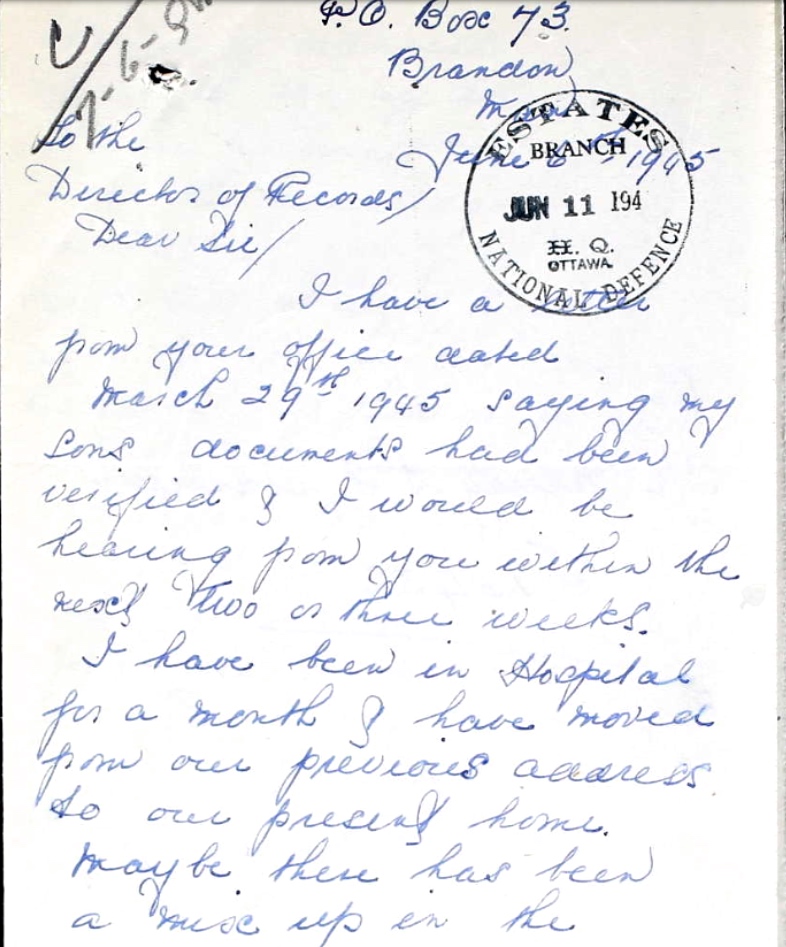 P.O. Box 73.
Brandon
Man
June 6th, 1945
To the
Director of Records/
Dear Sir/
ESTATES
BRANCH
JUN 11 194
H. Q.
OTTAWA
NATIONAL DEFENCE
I have a letter
from your office dated
March 29th 1945 saying my
sons documents had been
verified & I would be
hearing from you within the
next two or three weeks.
I have been in Hospital
for a month & have moved
from our previous address
to our present home.
Maybe there has been
a mix up in the